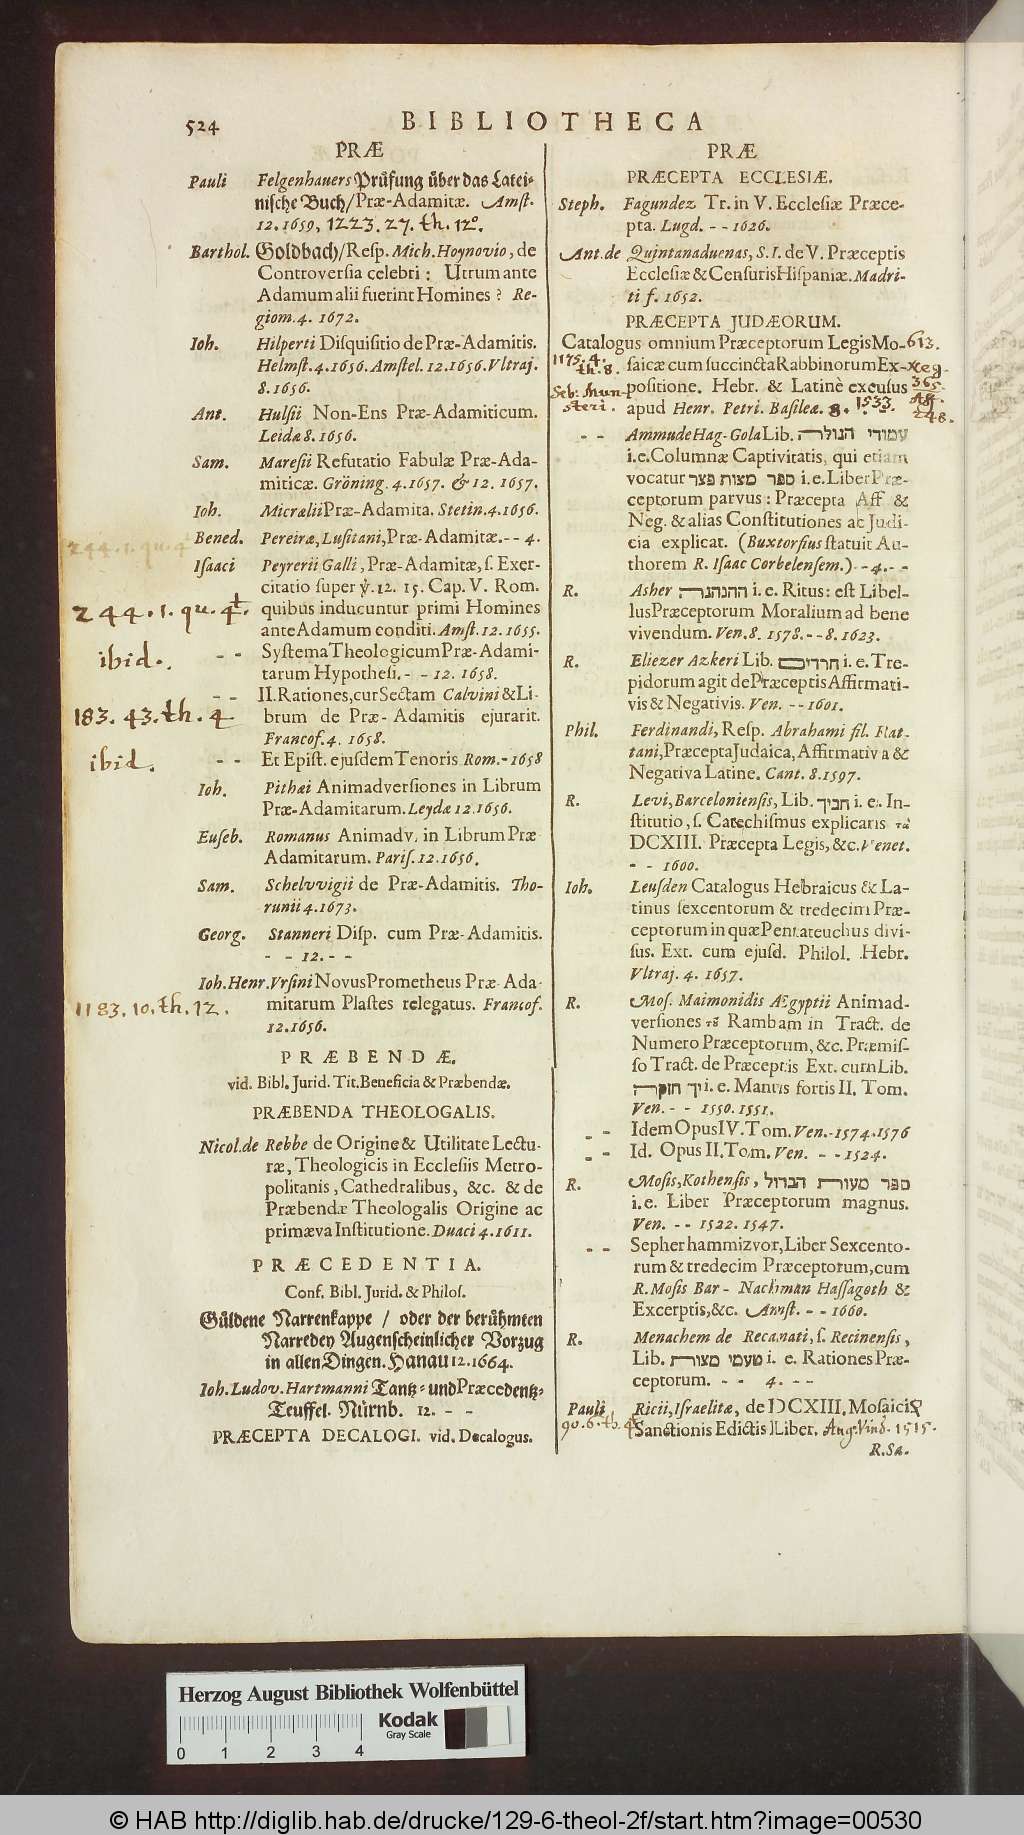 524
BIBLIOTHECA
PRÆ
Pauli Felgenhauers Prüfung über das Latei-
nische Buch/Præ-Adamitæ. Amst.
12. 1659, 1223. 27. th. 12°.
Barthol. Goldbach/Resp. Mich. Hoynovio, de
Controversia celebri: Utrum ante
Adamum alii fuerint Homines? Re-
giom. 4. 1672.
Ioh. Hilperti Disquisitio de Præ-Adamitis.
Helmst. 4. 1656. Amstel. 12. 1656. Vltraj.
8. 1656.
Ant. Hulsii Non-Ens Præ-Adamiticum.
Leidæ 8. 1656.
Sam. Maresii Refutatio Fabulæ Præ-Ada-
miticæ. Gröning. 4. 1657. & 12. 1657.
Ioh. Micrælii Præ-Adamita. Stetin. 4. 1656.
Bened. Pereiræ, Lusitani, Præ-Adamitæ. - - 4.
244. 1. qu. 4t
Isaaci Peyrerii Galli, Præ-Adamitæ, s. Exer-
citatio super ꝟ. 12. 15. Cap. V. Rom.
244. 1. qu. 4t. quibus inducuntur primi Homines
ante Adamum conditi. Amst. 12. 1655.
ibid. - - Systema Theologicum Præ-Adami-
tarum Hypothesi. - - 12. 1658.
- - II. Rationes, cur Sectam Calvini & Li-
183. 43. th. 4 brum de Præ-Adamitis ejurarit.
Francof. 4. 1658.
ibid. - - Et Epist. ejusdem Tenoris Rom. - 1658
Ioh. Pithæi Animadversiones in Librum
Præ-Adamitarum. Leydæ 12. 1656.
Euseb. Romanus Animadv. in Librum Præ
Adamitarum. Paris. 12. 1656.
Sam. Schelvvigii de Præ-Adamitis. Tho-
runii 4. 1673.
Georg. Stanneri Disp. cum Præ-Adamitis.
- - 12. - -
Ioh. Henr. Vrsini Novus Prometheus Præ-Ada-
1183. 10. th. 12. mitarum Plastes relegatus. Francof.
12. 1656.
PRÆBENDÆ.
vid. Bibl. Jurid. Tit. Beneficia & Præbendæ.
PRÆBENDA THEOLOGALIS.
Nicol. de Rebbe de Origine & Utilitate Lectu-
ræ, Theologicis in Ecclesiis Metro-
politanis, Cathedralibus, &c. & de
Præbendæ Theologalis Origine ac
primæva Institutione. Duaci 4. 1611.
PRÆCEDENTIA.
Conf. Bibl. Jurid. & Philos.
Güldene Narrenkappe / oder der berühmten
Narredey Augenscheinlicher Vorzug
in allen Dingen. Hanau 12. 1664.
Ioh. Ludov. Hartmanni Tantz- und Præcedentz-
Teuffel. Nürnb. 12. - -
PRÆCEPTA DECALOGI. vid. Decalogus.
PRÆ
PRÆCEPTA ECCLESIÆ.
Steph. Fagundez Tr. in V. Ecclesiæ Præce-
pta. Lugd. - - 1626.
Ant. de Quintanaduenas, S. I. de V. Præceptis
Ecclesiæ & Censuris Hispaniæ. Madri-
ti f. 1652.
PRÆCEPTA JUDÆORUM.
Catalogus omnium Præceptorum Legis Mo- 613.
1175. 4. th. 8. saicæ cum succincta Rabbinorum Ex-
Seb: Mun- positione. Hebr. & Latinè excusus 365.
steri. apud Henr. Petri. Basileæ. 8. 1533. 248.
- - Ammude Hag-Gola Lib. עמודי הגולה
i. e. Columnæ Captivitatis, qui etiam
vocatur ספר מצות קצר i. e. Liber Præ-
ceptorum parvus: Præcepta Aff &
Neg. & alias Constitutiones ac Judi-
cia explicat. (Buxtorfius statuit Au-
thorem R. Isaac Corbelensem.) - - 4. - -
R. Asher ההנהגה i. e. Ritus: est Libel-
lus Præceptorum Moralium ad bene
vivendum. Ven. 8. 1578. - - 8. 1623.
R. Eliezer Azkeri Lib. חרדים i. e. Tre-
pidorum agit de Præceptis Affirmati-
vis & Negativis. Ven. - - 1601.
Phil. Ferdinandi, Resp. Abrahami fil. Kat-
tani, Præcepta Judaica, Affirmativa &
Negativa Latine. Cant. 8. 1597.
R. Levi, Barceloniensis, Lib. חניך i. e. In-
stitutio, s. Catechismus explicaris τὰ
DCXIII. Præcepta Legis, &c. Venet.
- - 1600.
Ioh. Leusden Catalogus Hebraicus & La-
tinus sexcentorum & tredecim Præ-
ceptorum in quæ Pentateuchus divi-
sus. Ext. cum ejusd. Philol. Hebr.
Vltraj. 4. 1657.
R. Mos. Maimonidis Ægyptii Animad-
versiones τȣ̃ Rambam in Tract. de
Numero Præceptorum, &c. Præmis-
so Tract. de Præceptis Ext. cum Lib.
יד חזקה i. e. Manus fortis II. Tom.
Ven. - - 1550. 1551.
- - Idem Opus IV. Tom. Ven. - 1574. 1576
- - Id. Opus II. Tom. Ven. - - 1524.
R. Mosis, Kothensis, ספר מצות הגדול
i. e. Liber Præceptorum magnus.
Ven. - - 1522. 1547.
- - Sepher hammizvot, Liber Sexcento-
rum & tredecim Præceptorum, cum
R. Mosis Bar-Nachman Hassagoth &
Excerptis, &c. Amst. - - 1660.
R. Menachem de Recanati, s. Recinensis,
Lib. טעמי מצות i. e. Rationes Præ-
ceptorum. - - 4. - -
Pauli Ricii, Israelitæ, de DCXIII. Mosaicæ
90. 6. th. 4t Sanctionis Edictis Liber. Aug. Vind. 1515.
R. Sa.
Herzog August Bibliothek Wolfenbüttel
Kodak
Gray Scale
0 1 2 3 4
© HAB http://diglib.hab.de/drucke/129-6-theol-2f/start.htm?image=00530